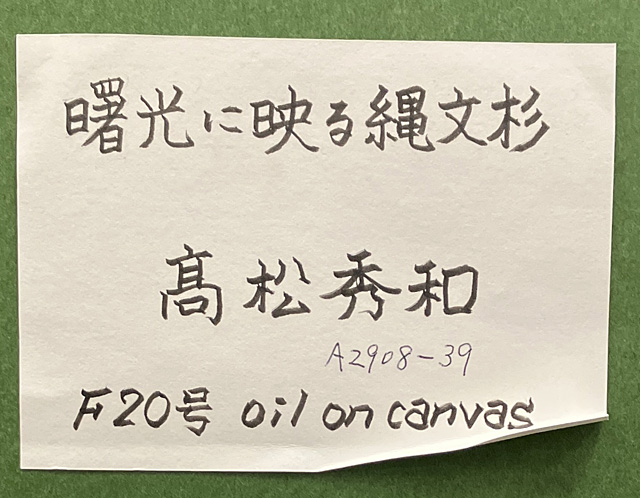 曙光に映る縄文杉
髙松秀和
A2908-39
F20号 oil on canvas